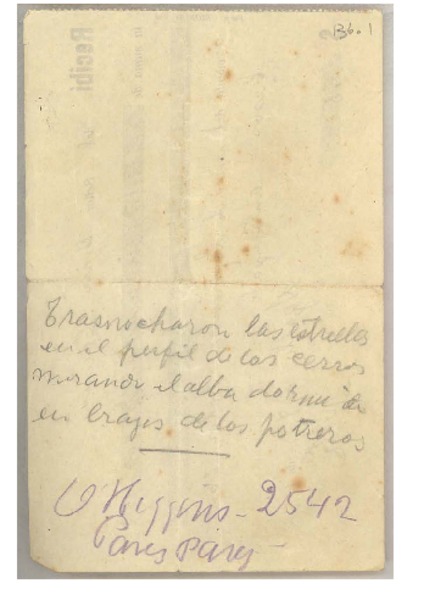 B6.1
Recibí
Trasnocharon las estrellas
en el perfil de los cerros
mirando el alba dormida
en brazos de los potreros
O'Higgins - 2542